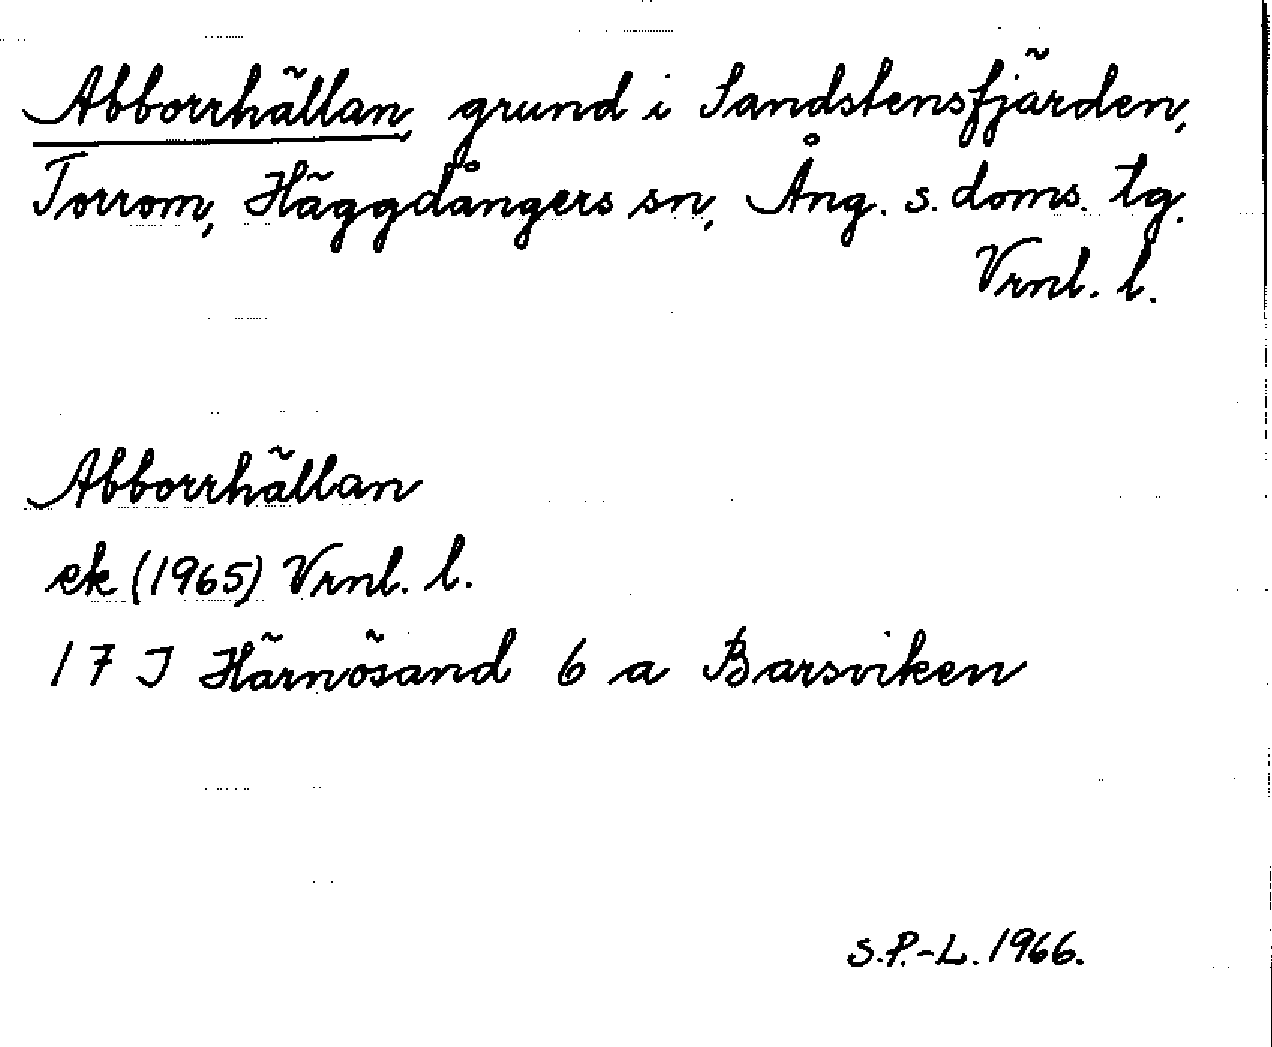 Abborrhällan, grund i Sandstensfjärden,
Torrom, Häggdångers sn, Ång. s. doms. tg.
Vrnl. l.
Abborrhällan
ek (1965) Vrnl. l.
17 I Härnösand 6 a Barsviken
S.P.-L. 1966.